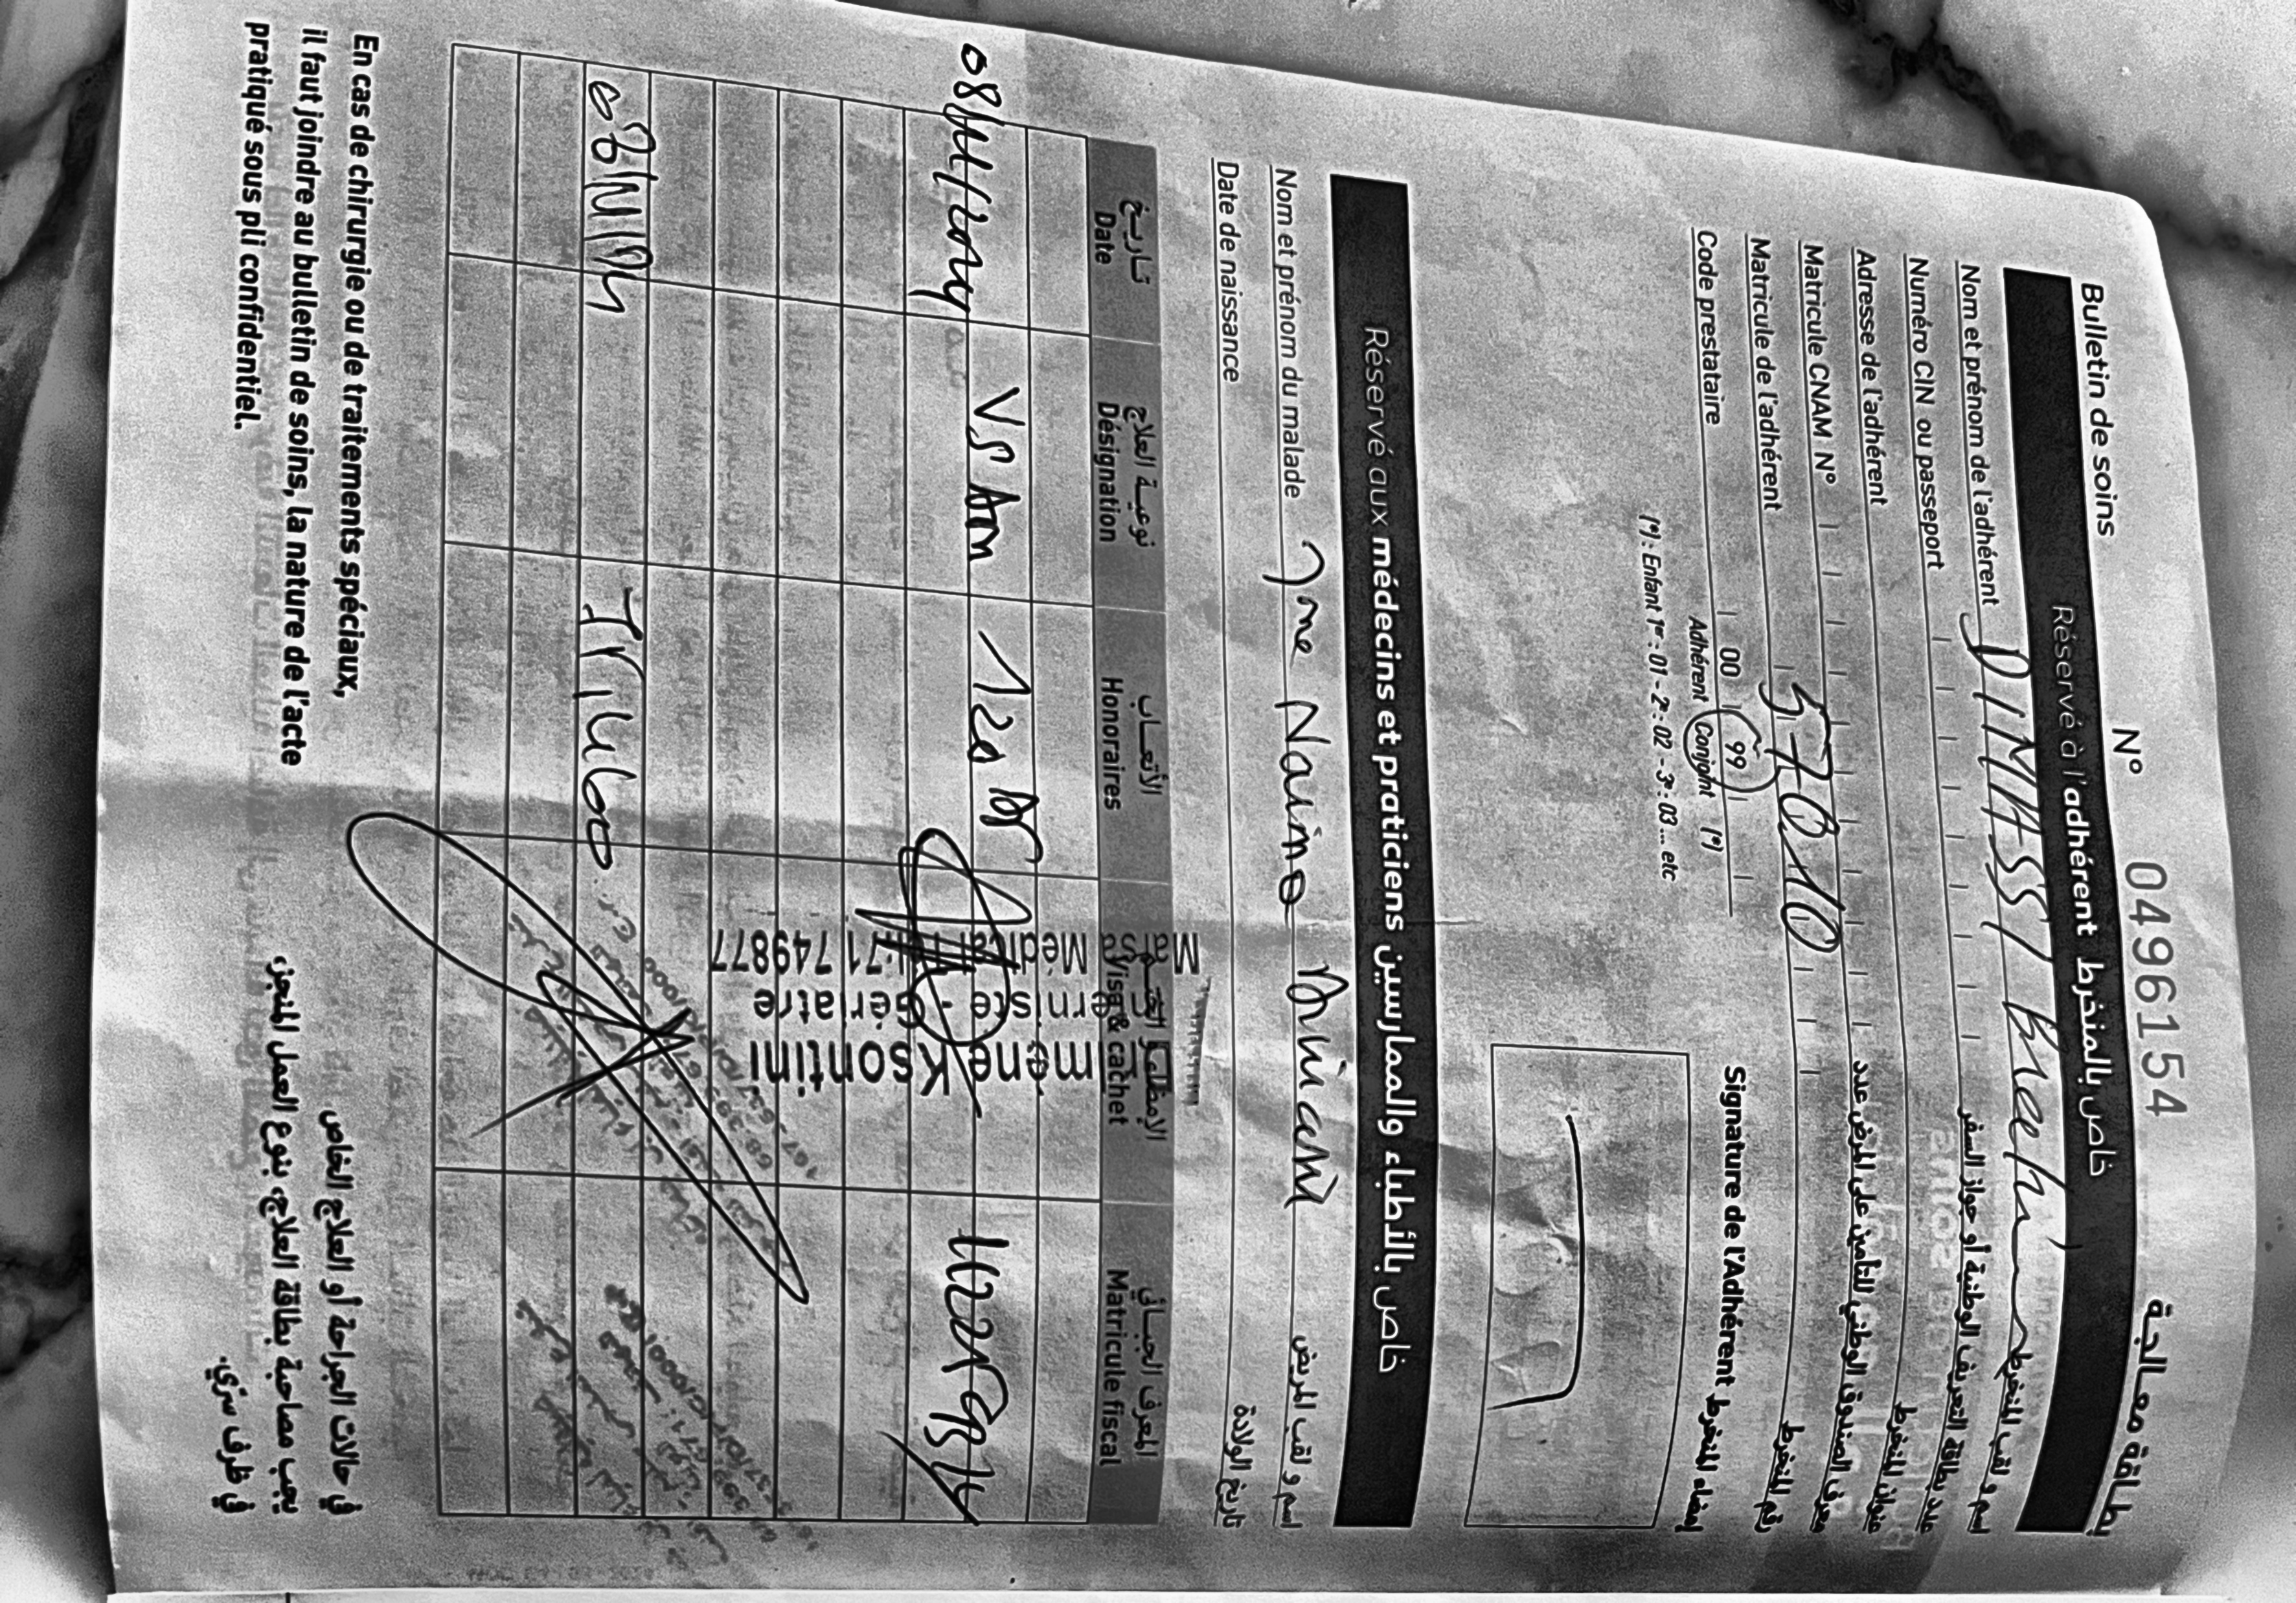 Bulletin de soins N° 04961154 بطاقة معالجة
Réservé à l'adhérent خاص بالمنخرط
Nom et prénom de l'adhérent DIMASSI Brahim اسم و لقب المنخرط
Numéro CIN ou passeport عدد بطاقة التعريف الوطنية أو جواز السفر
Adresse de l'adhérent عنوان المنخرط
Matricule CNAM N° معرف الصندوق الوطني للتأمين على المرض عدد
Matricule de l'adhérent 57010 رقم المنخرط
Code prestataire 00 99
Adhérent Conjoint (*)
(*) : Enfant 1er : 01 - 2e : 02 - 3e : 03 ... etc
Signature de l'Adhérent إمضاء المنخرط
Réservé aux médecins et praticiens خاص بالأطباء والممارسين
Nom et prénom du malade Mme Naima اسم و لقب المريض
Date de naissance تاريخ الولادة
تاريخ نوعية العلاج الأتعاب الإمضاء و الختم المعرف الجبائي
Date Désignation Honoraires Visa & cachet Matricule fiscal
08/11/2024 VS Am 120 DT
Ksontini
Gériatre
71 749877
En cas de chirurgie ou de traitements spéciaux,
il faut joindre au bulletin de soins, la nature de l'acte
pratiqué sous pli confidentiel.
في حالات الجراحة أو العلاج الخاص
يجب مصاحبة بطاقة العلاج، بنوع العمل المنجز،
في ظرف سرّي.